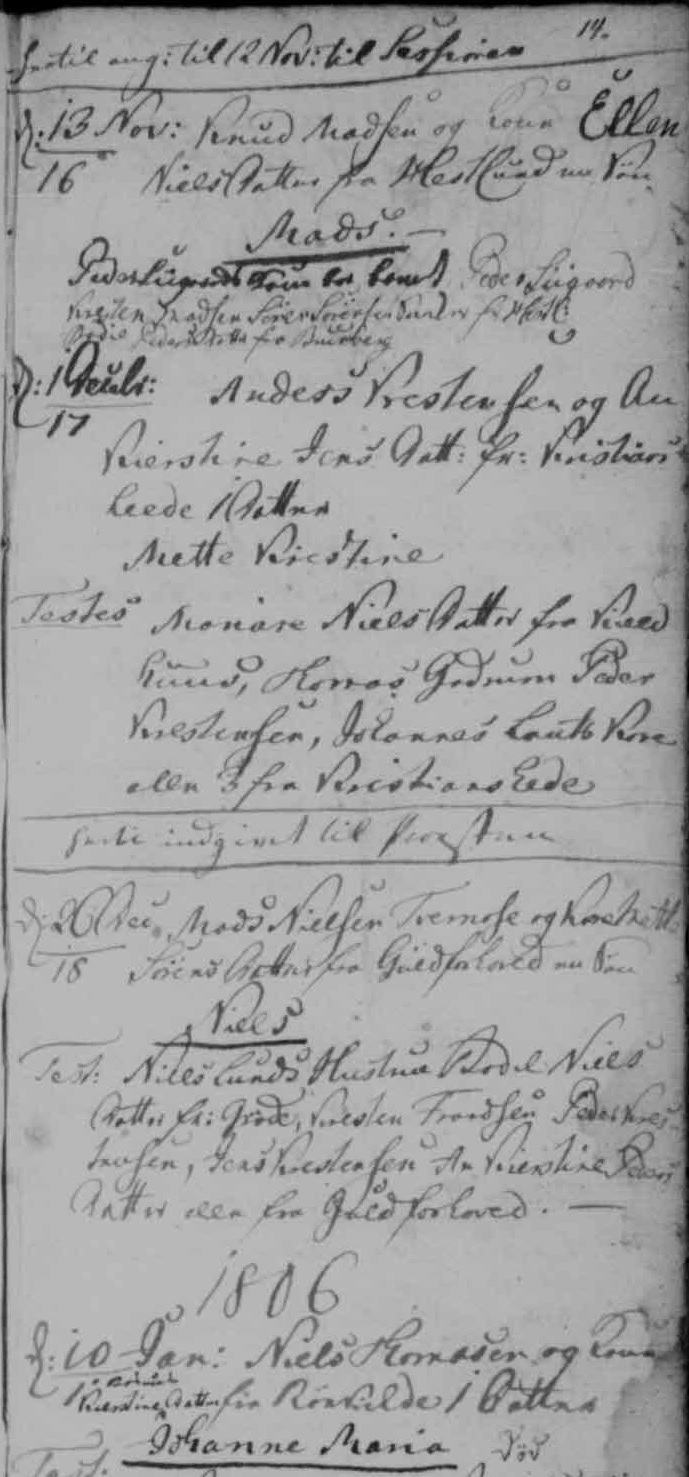 14.
til 12 Nov: til Sessionen
d: 13 Nov: Knud Madsen og Kone Ellen
16 Niels Datter fra Hestlund en Søn
Mads. —
Peder Kone bar barnet Peder
Kresten Madsen Søren Sørensen fr: Hestl:
Bodil Peders Datter fra
d: 1 Decbr: Anders Krestensen og An
17
Kierstine Jens Datt: fr: Kristians
heede 1 Datter
Mette Kirstine
Testes Mariane Niels Datter fra
huus, Thomas Peder
Krestensen, Johannes Kone
alle 3 fra Kristianshede
indgivet til Præsten
d: 26 Dec Mads Nielsen Tremose og Kone Mette
18 Sørens Datter fra Guldforhoved en Søn
Niels
Test: Niels Lunds Hustrue Bodil Niels
Datter fr: Grøde, Kresten Frandsen Peder Kres-
tensen, Jens Krestensen An Kierstine Peders
Datter alle fra Guldforhoved. —
1806
d: 10 Jan: Niels Thomasen og Kone
1 Kierstine Datter fra 1 Datter
Johanne Maria død
Test: